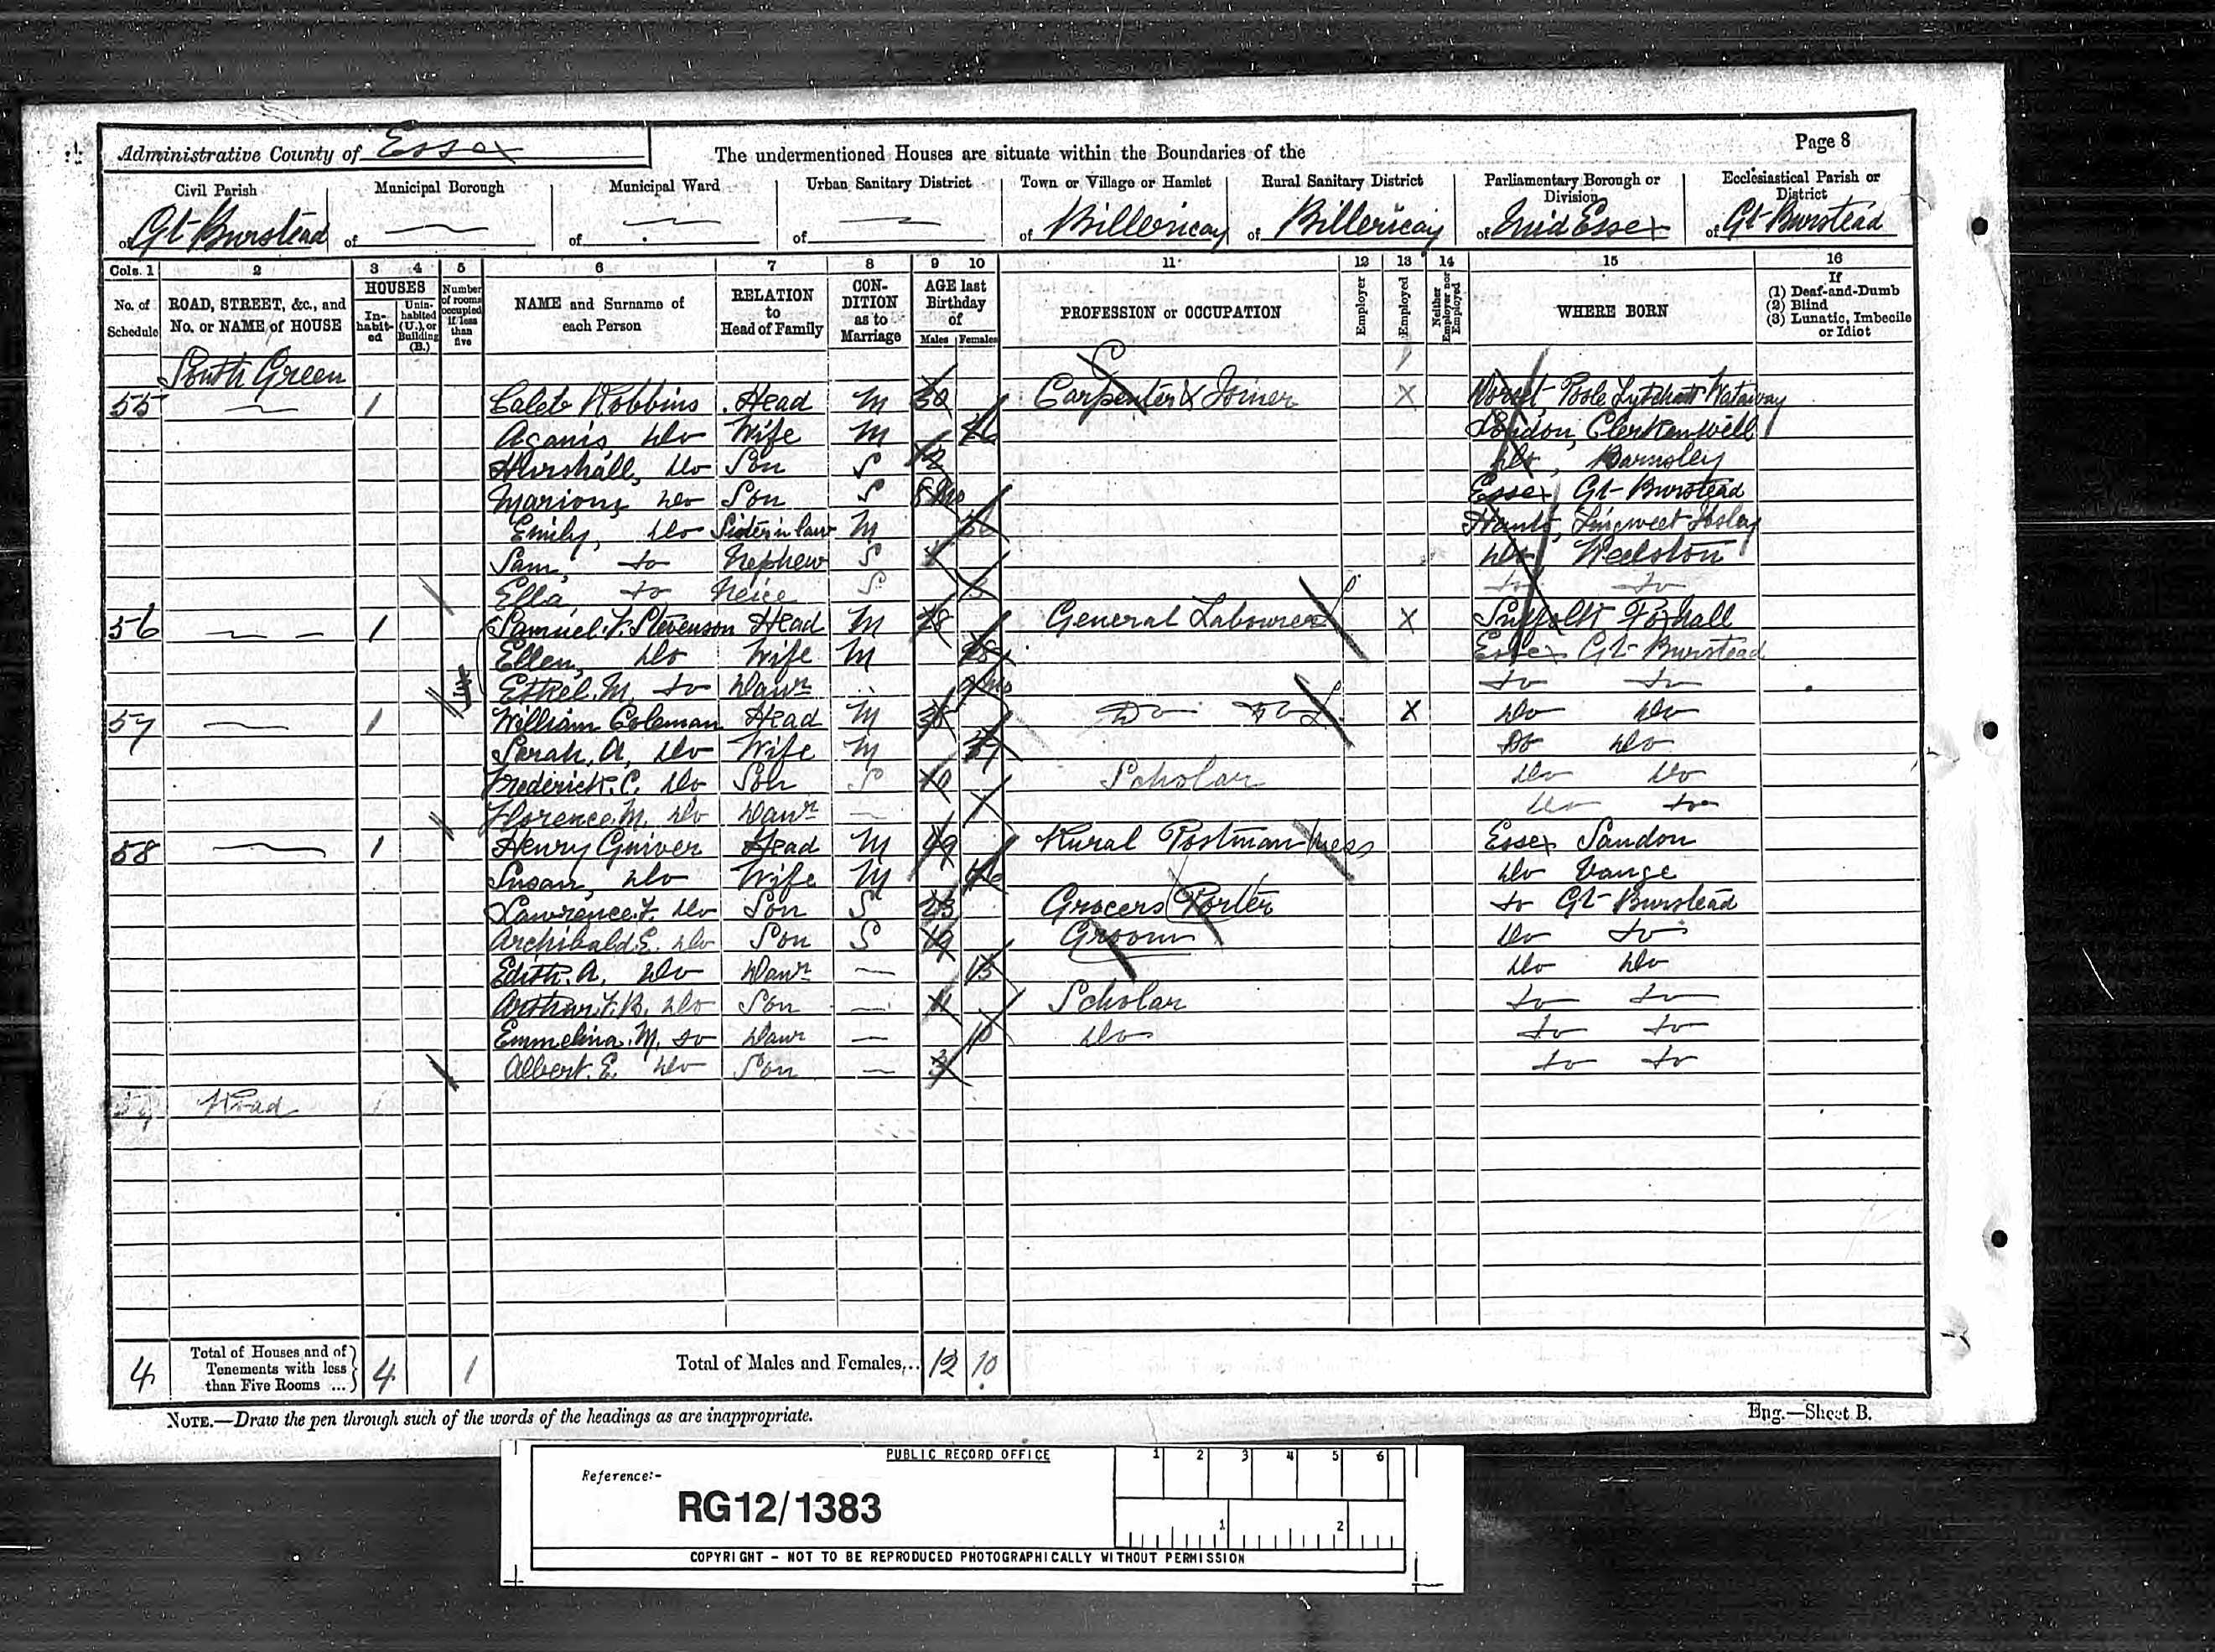 Administrative County of Essex
The undermentioned Houses are situate within the Boundaries of the
Page 8
Civil Parish of Gt Burstead
Municipal Borough of —
Municipal Ward of —
Urban Sanitary District of —
Town or Village or Hamlet of Billericay
Rural Sanitary District of Billericay
Parliamentary Borough or Division of Mid Essex
Ecclesiastical Parish or District of Gt Burstead
Cols. 1 2 3 4 5 6 7 8 9 10 11 12 13 14 15 16
No. of Schedule
ROAD, STREET, &c., and No. or NAME of HOUSE
HOUSES
In-habit-ed
Unin-habited (U.), or Building (B.)
Number of rooms occupied if less than five
NAME and Surname of each Person
RELATION to Head of Family
CON-DITION as to Marriage
AGE last Birthday of
Males Females
PROFESSION or OCCUPATION
Employer
Employed
Neither Employer nor Employed
WHERE BORN
If
(1) Deaf-and-Dumb
(2) Blind
(3) Lunatic, Imbecile or Idiot
South Green
55 — 1 Caleb Robbins Head M 30 Carpenter & Joiner X Dorset Poole Lytchett
do Wife M 26 London, Clerkenwell
do Son S 2 do,
Marion, do Son S 8 Mo Essex Gt Burstead
Emily, do Sister in law M Hants,
Sam, do Nephew S do
Ella, do Neice S 3 do do
56 — — 1 Samuel F. Stevenson Head M 28 General Labourer X Suffolk Foxhall
Ellen, do Wife M 28 Essex Gt Burstead
Ethel. M. do Daur do do
57 — 1 William Coleman Head M Do Do X do do
Sarah. A. do Wife M Do do
Frederick. C. do Son S 10 Scholar do do
Florence. M. do Daur — do do
58 — 1 Henry Guiver Head M 49 Rural Postman Essex Sandon
Susan, do Wife M 46 do Vange
Lawrence. F. do Son S 23 Grocers Porter do Gt Burstead
Archibald. E. do Son S 19 Groom do do
Edith. A. do Daur — 13 do do
Arthur. F. B. do Son — 11 Scholar do do
Emmelina. M. do Daur — 10 do do do
Albert. E. do Son — 3 do do
4 Total of Houses and of Tenements with less than Five Rooms ... 4 1 Total of Males and Females,... 12 10
NOTE.—Draw the pen through such of the words of the headings as are inappropriate.
Eng.—Sheet B.
PUBLIC RECORD OFFICE
1 2 3 4 5 6
Reference:-
RG12/1383
1 2
COPYRIGHT - NOT TO BE REPRODUCED PHOTOGRAPHICALLY WITHOUT PERMISSION